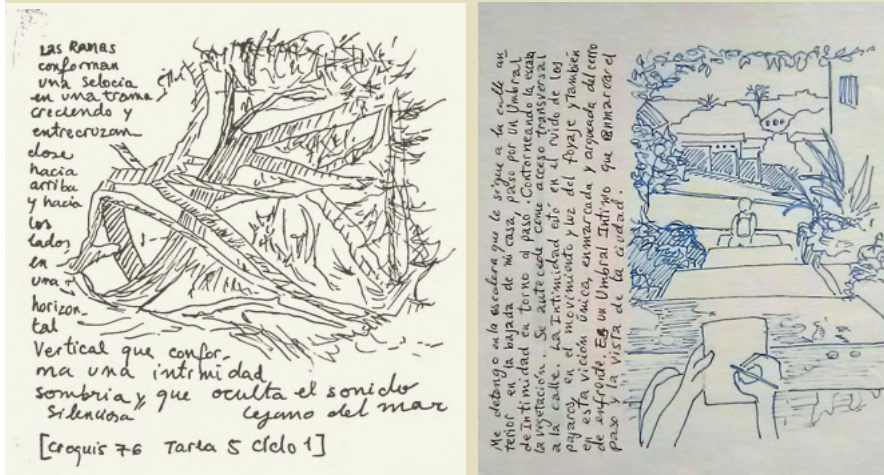 las Ramas
conforman
una selocia
en una trama
creciendo y
entrecruzan
dose
hacia
arriba
y hacia
los
lados
en
una
horizon-
tal
Vertical que confor-
ma una intimidad
sombria y que oculta el sonido
silenciosa lejano del mar
[croquis 76 Tarea 5 Ciclo 1]
Me detengo en la escalera que le sigue a la calle an
terior en la bajada de mi casa, paso por un Umbral
de Intimidad en torno al paso. Contorneando la escala
la vegetación. Se antecede como acceso transversal
a la calle. La Intimidad está en el ruido de los
pajaros, en el movimiento y luz del foyaje y también
en esta vición única, enmarcada y arqueada del cerro
de enfrente. Es un Umbral Intimo que enmarcar el
paso y la vista de la ciudad.